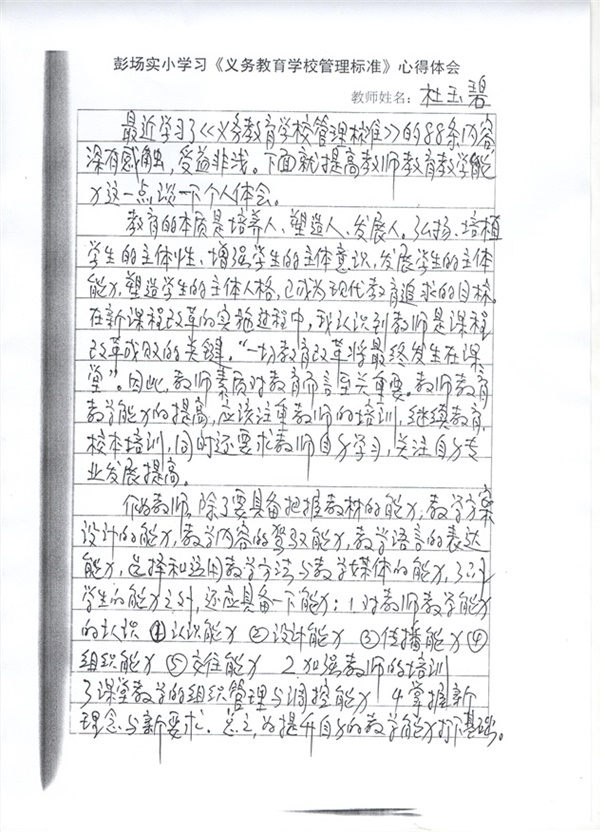 彭场实小学习《义务教育学校管理标准》心得体会
教师姓名：杜玉碧
最近学习了《义务教育学校管理标准》的88条内容
深有感触，受益非浅。下面就提高教师教育教学能
力这一点谈一下个人体会。
教育的本质是培养人、塑造人、发展人。弘扬、培植
学生的主体性、增强学生的主体意识，发展学生的主体
能力，塑造学生的主体人格，已成为现代教育追求的目标。
在新课程改革的实施过程中，我认识到教师是课程
改革成败的关键，“一切教育改革将最终发生在课
堂”。因此，教师素质对教育而言至关重要。教师教育
教学能力的提高，应该注重教师的培训，继续教育，
校本培训，同时还要求教师自身学习，关注自身专
业发展提高。
作为教师，除了要具备把握教材的能力，教学方案
设计的能力，教学内容的驾驭能力，教学语言的表达
能力，选择和运用教学方法与教学媒体的能力，了解
学生的能力之外，还应具备一下能力：1.对教师教学能力
的认识 ①认识能力 ②设计能力 ③传播能力 ④
组织能力 ⑤交往能力 2 加强教师的培训
3 课堂教学的组织管理与调控能力 4 掌握新
理念与新要求。总之，为提升自身的教学能力打下基础。